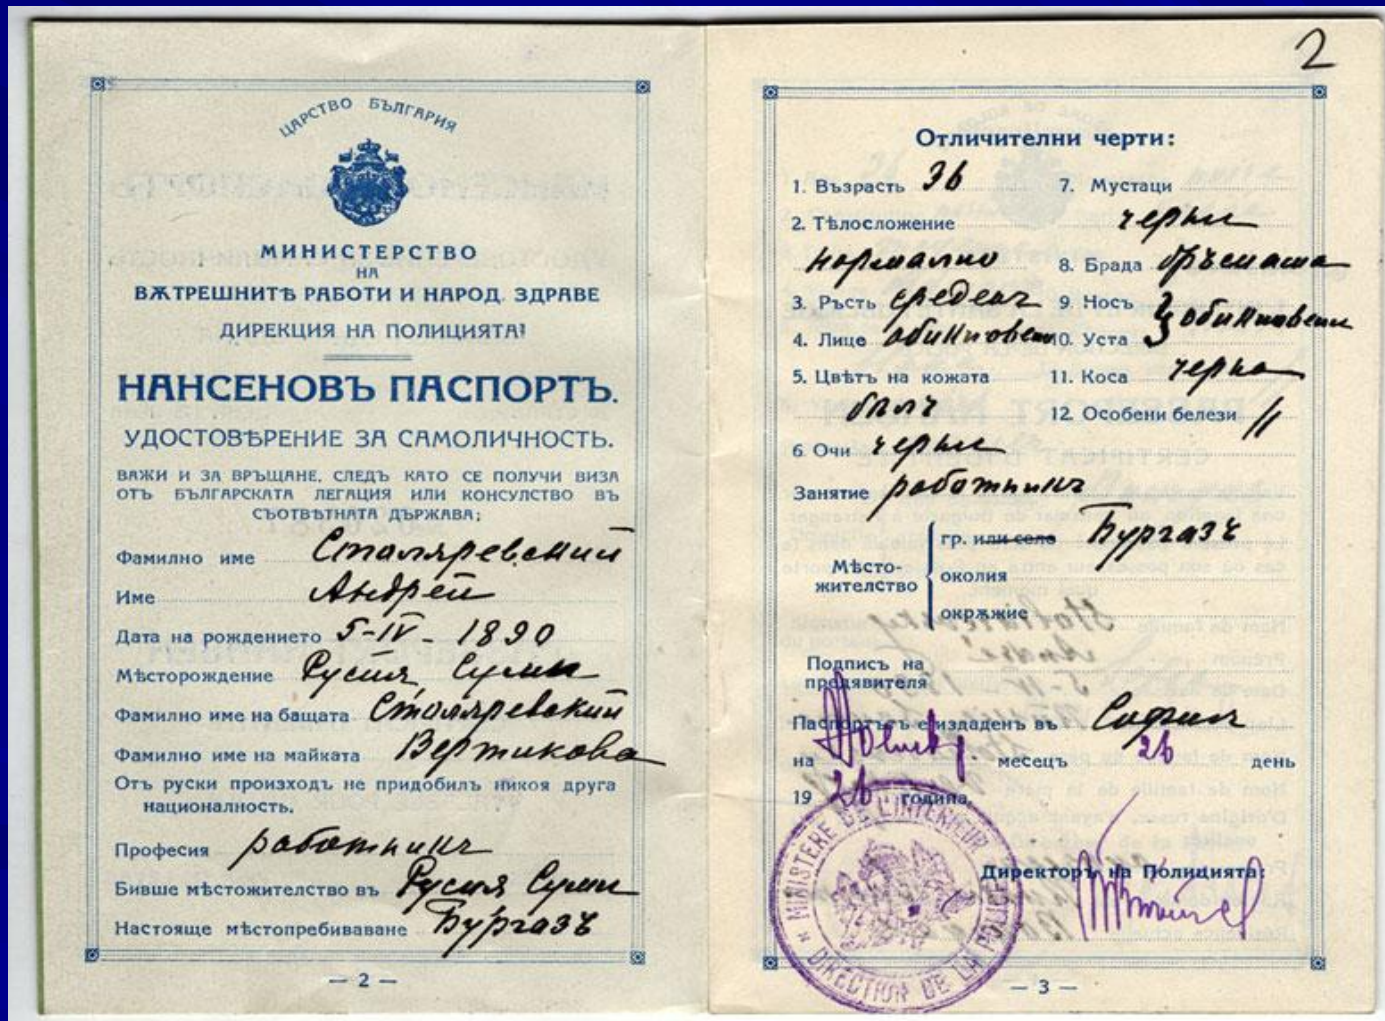 ЦАРСТВО БЪЛГАРИЯ
МИНИСТЕРСТВО
НА
ВѪТРЕШНИТѢ РАБОТИ И НАРОД. ЗДРАВЕ
ДИРЕКЦИЯ НА ПОЛИЦИЯТА
НАНСЕНОВЪ ПАСПОРТЪ.
УДОСТОВѢРЕНИЕ ЗА САМОЛИЧНОСТЬ.
ВАЖИ И ЗА ВРЪЩАНЕ, СЛЕДЪ КАТО СЕ ПОЛУЧИ ВИЗА
ОТЪ БЪЛГАРСКАТА ЛЕГАЦИЯ ИЛИ КОНСУЛСТВО ВЪ
СЪОТВѢТНАТА ДЪРЖАВА;
Фамилно име Столяревский
Име Андрей
Дата на рождението 5-IV-1890
Мѣсторождение Русия Суми
Фамилно име на бащата Столяревский
Фамилно име на майката Вертикова
Отъ руски произходъ не придобилъ никоя друга
националность.
Професия работникъ
Бивше мѣстожителство въ Русия Суми
Настояще мѣстопребиваване Бургазъ
— 2 —
2
Отличителни черти:
1. Възрасть 36
2. Тѣлосложение
нормално
3. Ръсть среденъ
4. Лице обикновено
5. Цвѣтъ на кожата
бялъ
6. Очи черни
7. Мустаци
черни
8. Брада бръсната
9. Носъ } обикновени
10. Уста
11. Коса черна
12. Особени белези //
Занятие работникъ
Мѣсто-
жителство
гр. или село Бургазъ
околия
окрѫжие
Подпись на
предявителя
Паспортътъ е издаденъ въ София
на месецъ 26 день
19 26 година.
Директоръ на Полицията:
MINISTERE DE L'INTERIEUR
DIRECTION DE LA POLICE
— 3 —